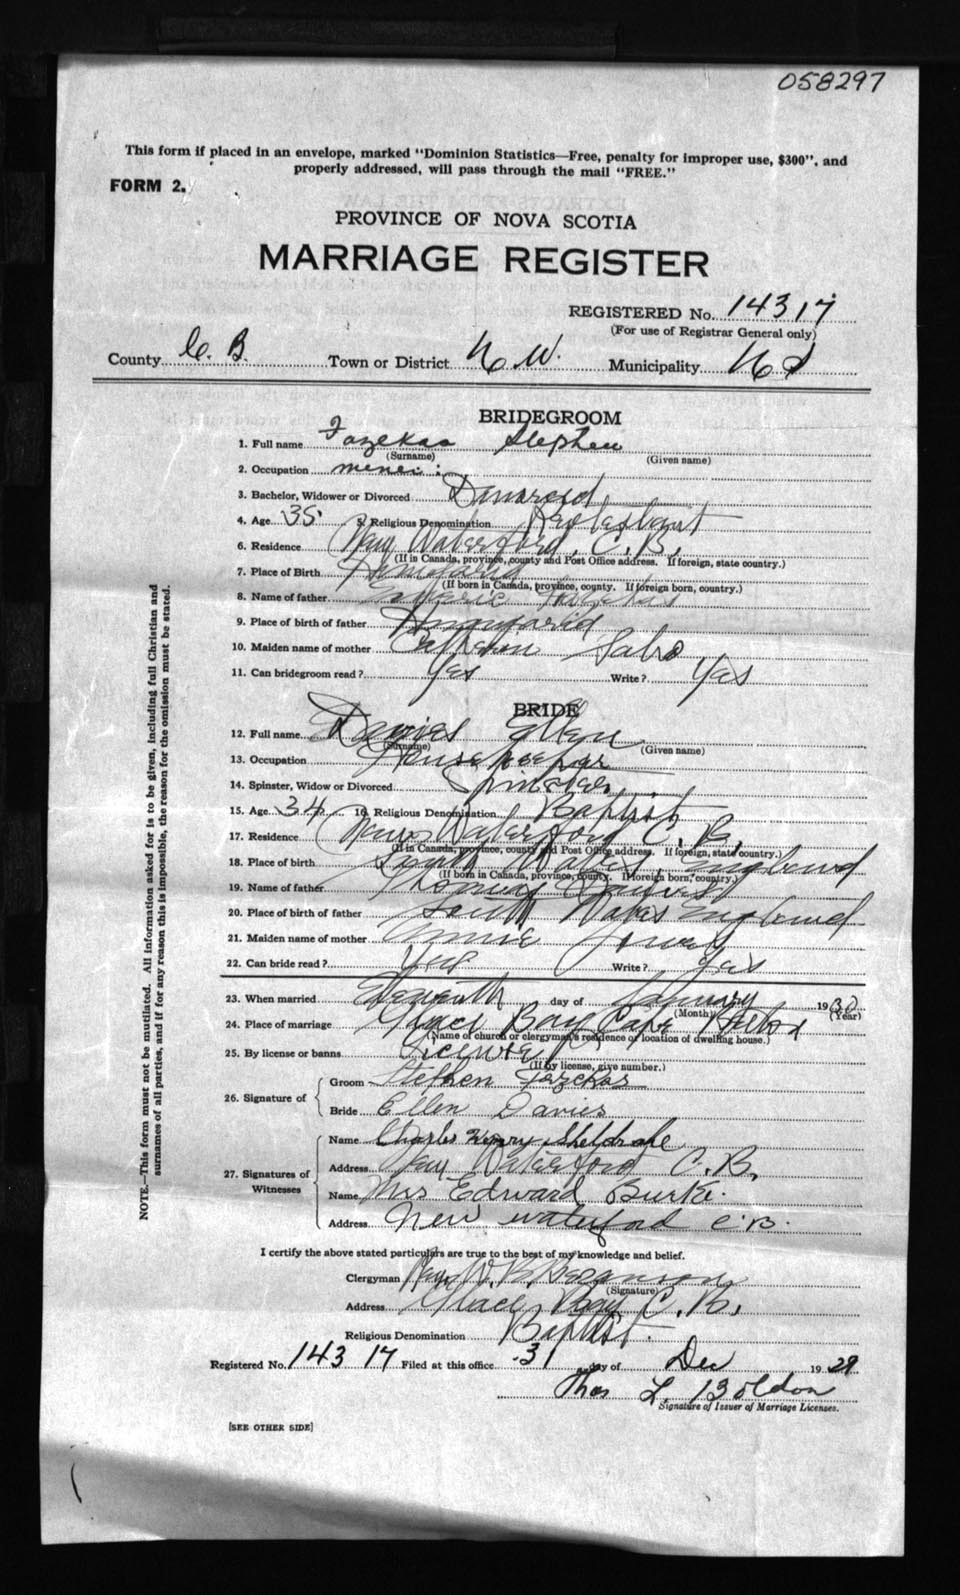 058297
This form if placed in an envelope, marked "Dominion Statistics—Free, penalty for improper use, $300", and
properly addressed, will pass through the mail "FREE."
FORM 2.
PROVINCE OF NOVA SCOTIA
MARRIAGE REGISTER
REGISTERED No. 14317
(For use of Registrar General only)
County C. B. Town or District N. W. Municipality N S
BRIDEGROOM
1. Full name Fazekas Stephen
(Surname) (Given name)
2. Occupation miner
3. Bachelor, Widower or Divorced Divorced
4. Age 35 5. Religious Denomination Protestant
6. Residence New Waterford, C. B.
(If in Canada, province, county and Post Office address. If foreign, state country.)
7. Place of Birth
(If born in Canada, province, county. If foreign born, country.)
8. Name of father Fazekas
9. Place of birth of father
10. Maiden name of mother Sabo
11. Can bridegroom read? yes Write? Yas
BRIDE
12. Full name Davies Ellen
(Surname) (Given name)
13. Occupation Housekeeper
14. Spinster, Widow or Divorced Spinster
15. Age 34 16. Religious Denomination Baptist
17. Residence New Waterford C. B.
(If in Canada, province, county and Post Office address. If foreign, state country.)
18. Place of birth South Wales England
(If born in Canada, province, county. If foreign born, country.)
19. Name of father Thomas Davies
20. Place of birth of father South Wales England
21. Maiden name of mother Annie Jones
22. Can bride read? Yes Write? Yas
23. When married day of January 1930
(Month) (Year)
24. Place of marriage Glace Bay Cape Breton
(Name of church or clergyman's residence or location of dwelling house.)
25. By license or banns License
(If by license, give number.)
26. Signature of
Groom Stephen Fazekas
Bride Ellen Davies
27. Signatures of Witnesses
Name Charles Henry Sheldrake
Address New Waterford C. B.
Name Mrs Edward Burke.
Address New Waterford C.B.
I certify the above stated particulars are true to the best of my knowledge and belief.
Clergyman W. B. Bezanson
(Signature)
Address Glace Bay C. B.
Religious Denomination Baptist.
Registered No. 14317 Filed at this office 31 day of Dec 1929
Thos L. Boldon
Signature of Issuer of Marriage Licenses.
[SEE OTHER SIDE]
NOTE.—This form must not be mutilated. All information asked for is to be given, including full Christian and
surnames of all parties, and if for any reason this is impossible, the reason for the omission must be stated.